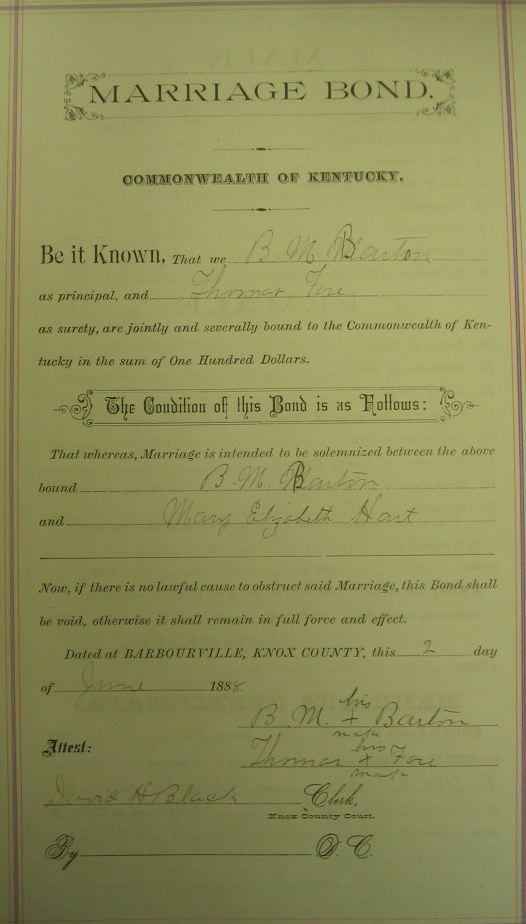 MARRIAGE BOND.
COMMONWEALTH OF KENTUCKY.
Be it Known, That we B. M. Barton
as principal, and Thomas Fore
as surety, are jointly and severally bound to the Commonwealth of Ken-
tucky in the sum of One Hundred Dollars.
The Condition of this Bond is as Follows:
That whereas, Marriage is intended to be solemnized between the above
bound B. M. Barton
and Mary Elizabeth Hart
Now, if there is no lawful cause to obstruct said Marriage, this Bond shall
be void, otherwise it shall remain in full force and effect.
Dated at BARBOURVILLE, KNOX COUNTY, this 2 day
of June 1888
his
B. M. + Barton
mark
Attest:
his
Thomas x Fore
mark
David H Black Clerk,
Knox County Court.
By D. C.